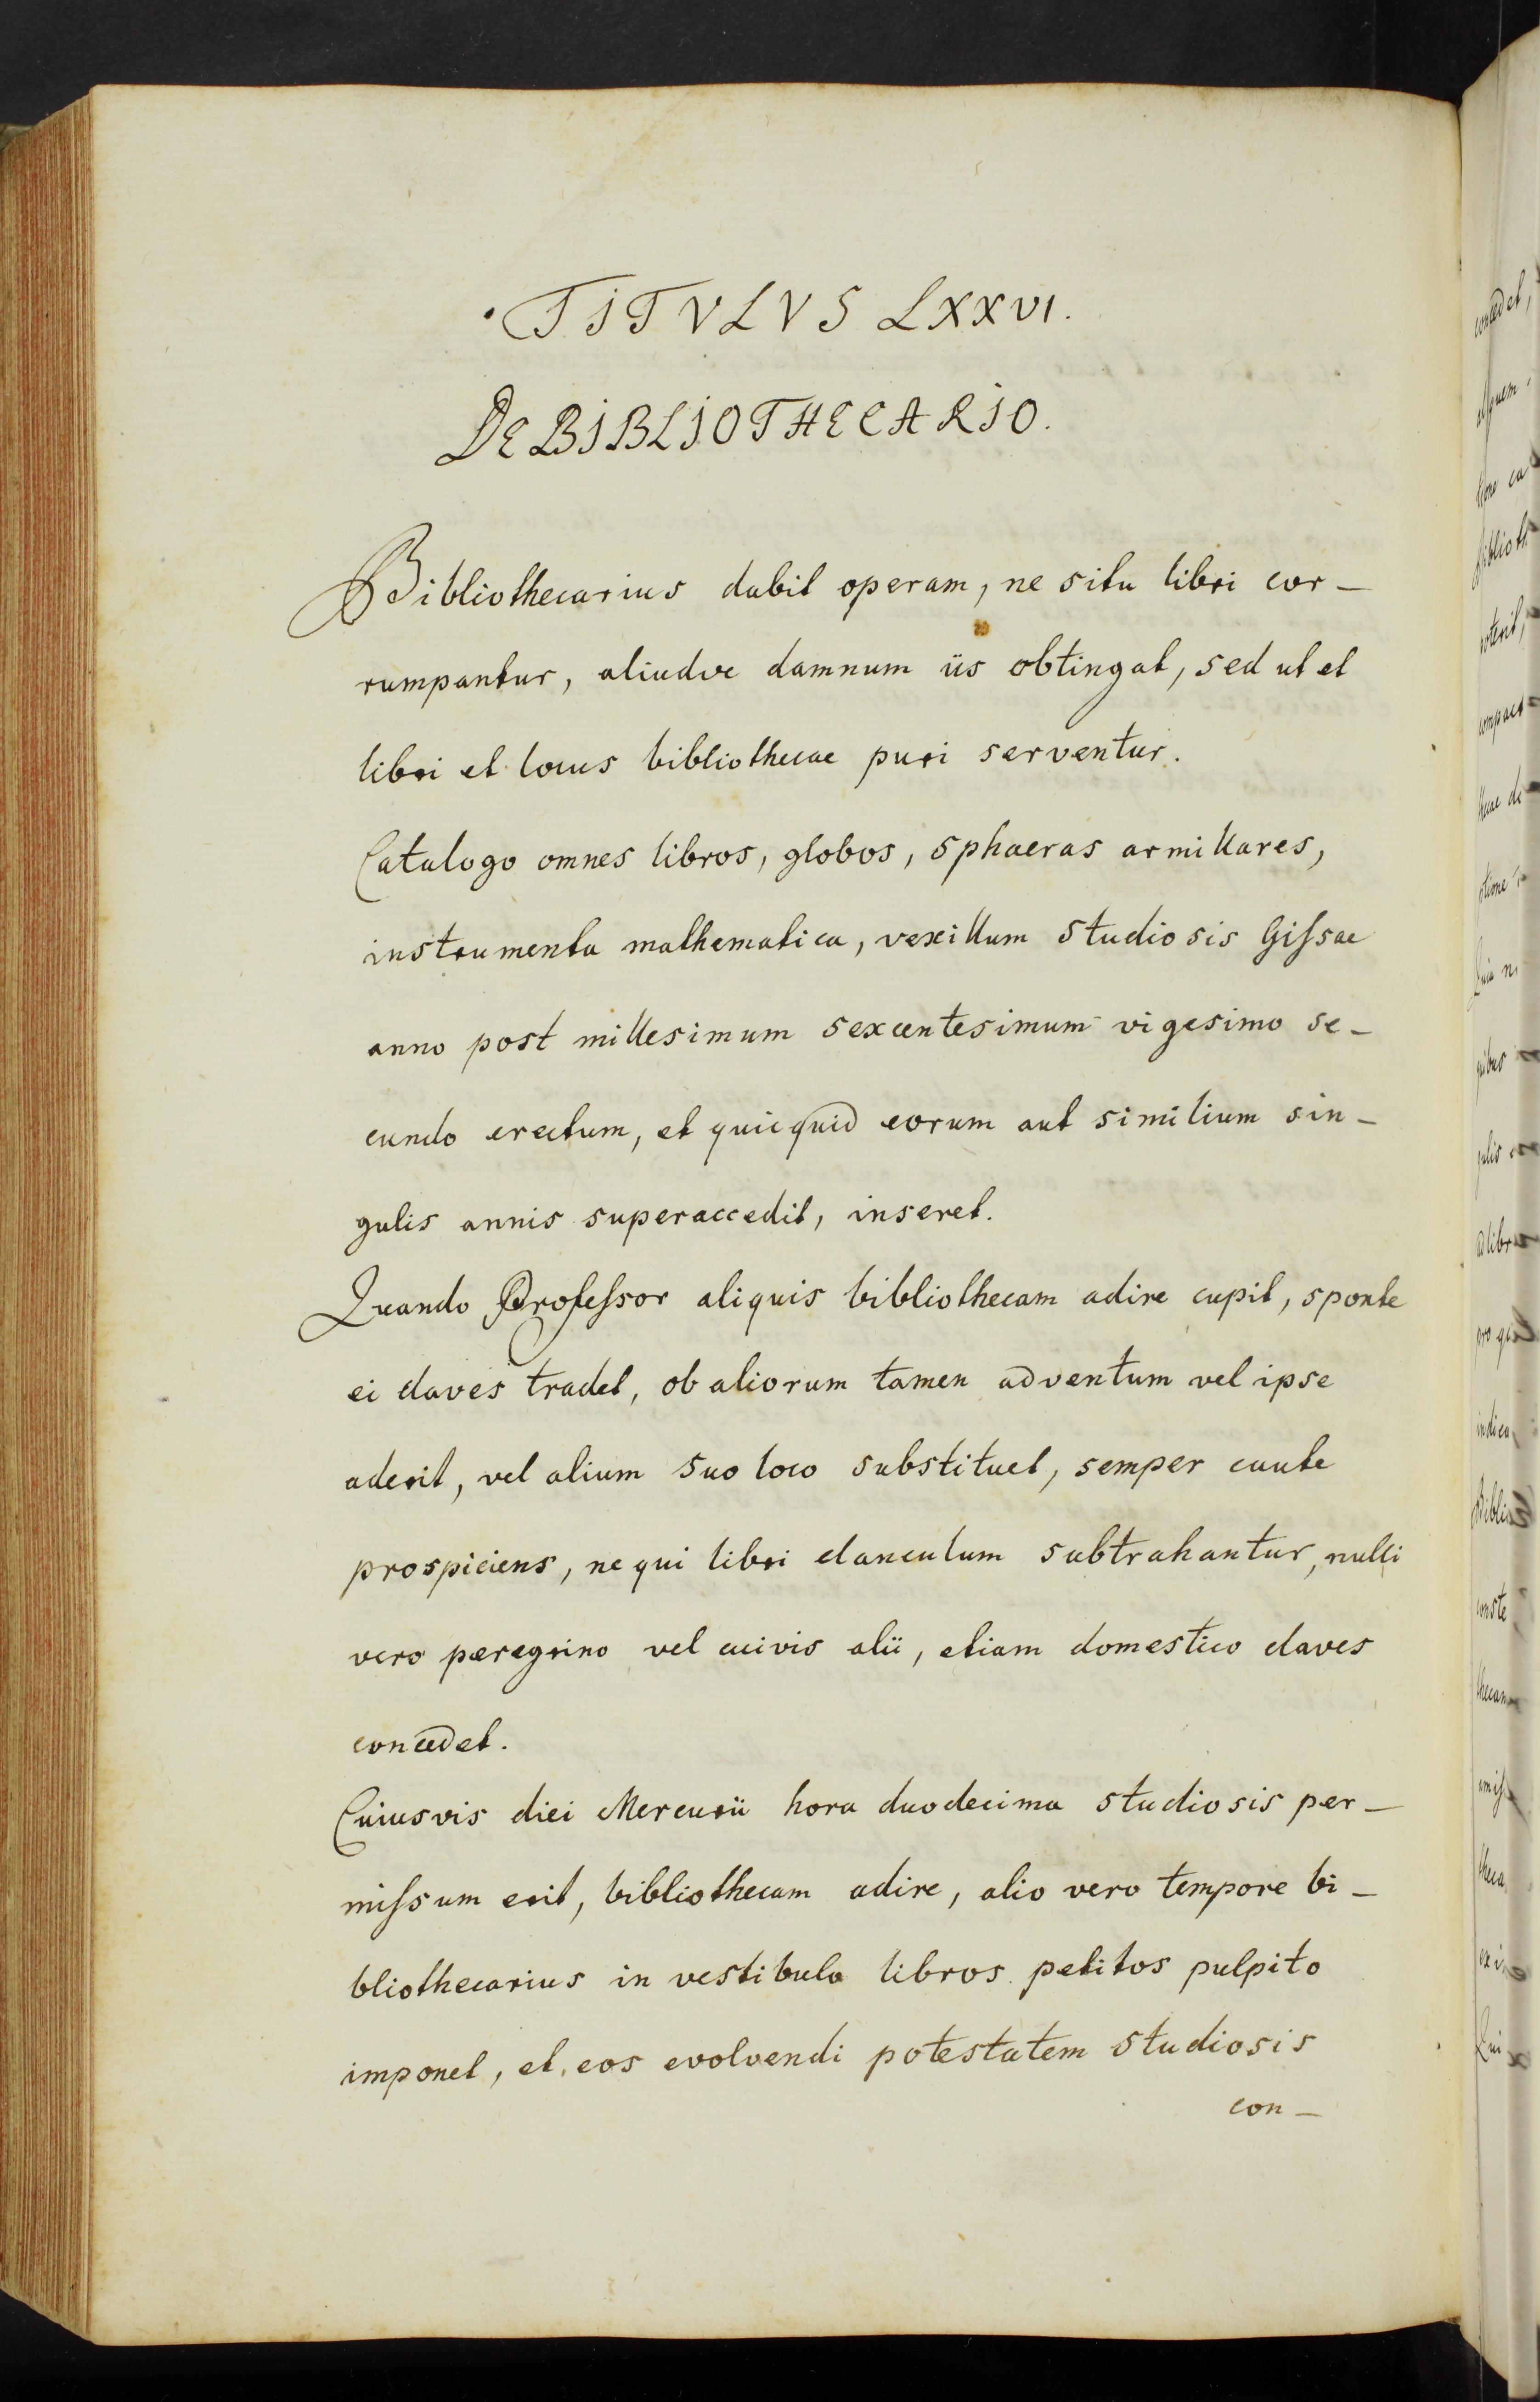 TITVLVS LXXVI.
DE BIBLIOTHECARIO.
Bibliothecarius dabit operam, ne situ libri cor-
rumpantur, aliudve damnum iis obtingat, sed ut et
libri et locus bibliothecae puri serventur.
Catalogo omnes libros, globos, sphaeras armillares,
instrumenta mathematica, vexillum studiosis Gissae
anno post millesimum sexcentesimum vigesimo se-
cundo erectum, et quicquid eorum aut similium sin-
gulis annis superaccedit, inseret.
Quando Professor aliquis bibliothecam adire cupit, sponte
ei claves tradet, ob aliorum tamen adventum vel ipse
aderit, vel alium suo loco substituet, semper caute
prospiciens, ne qui libri clanculum subtrahantur, nulli
vero peregrino vel cuivis alii, etiam domestico claves
concedet.
Cuiusvis diei Mercurii hora duodecima studiosis per-
missum erit, bibliothecam adire, alio vero tempore bi-
bliothecarius in vestibulo libros petitos pulpito
imponet, et eos evolvendi potestatem studiosis
con-